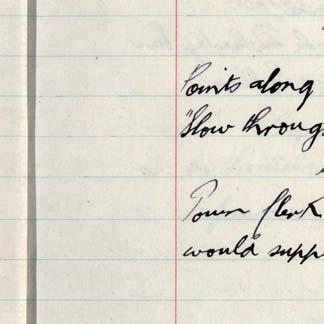 Points along
"Slow throug
Town Clerk
would supp